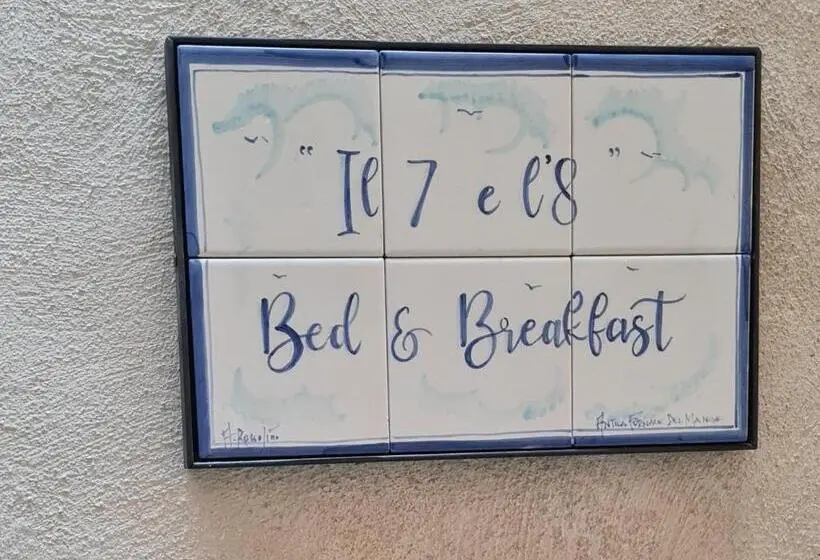 “ Il 7 e l'8 ”
Bed & Breakfast
Antica Fornace Del